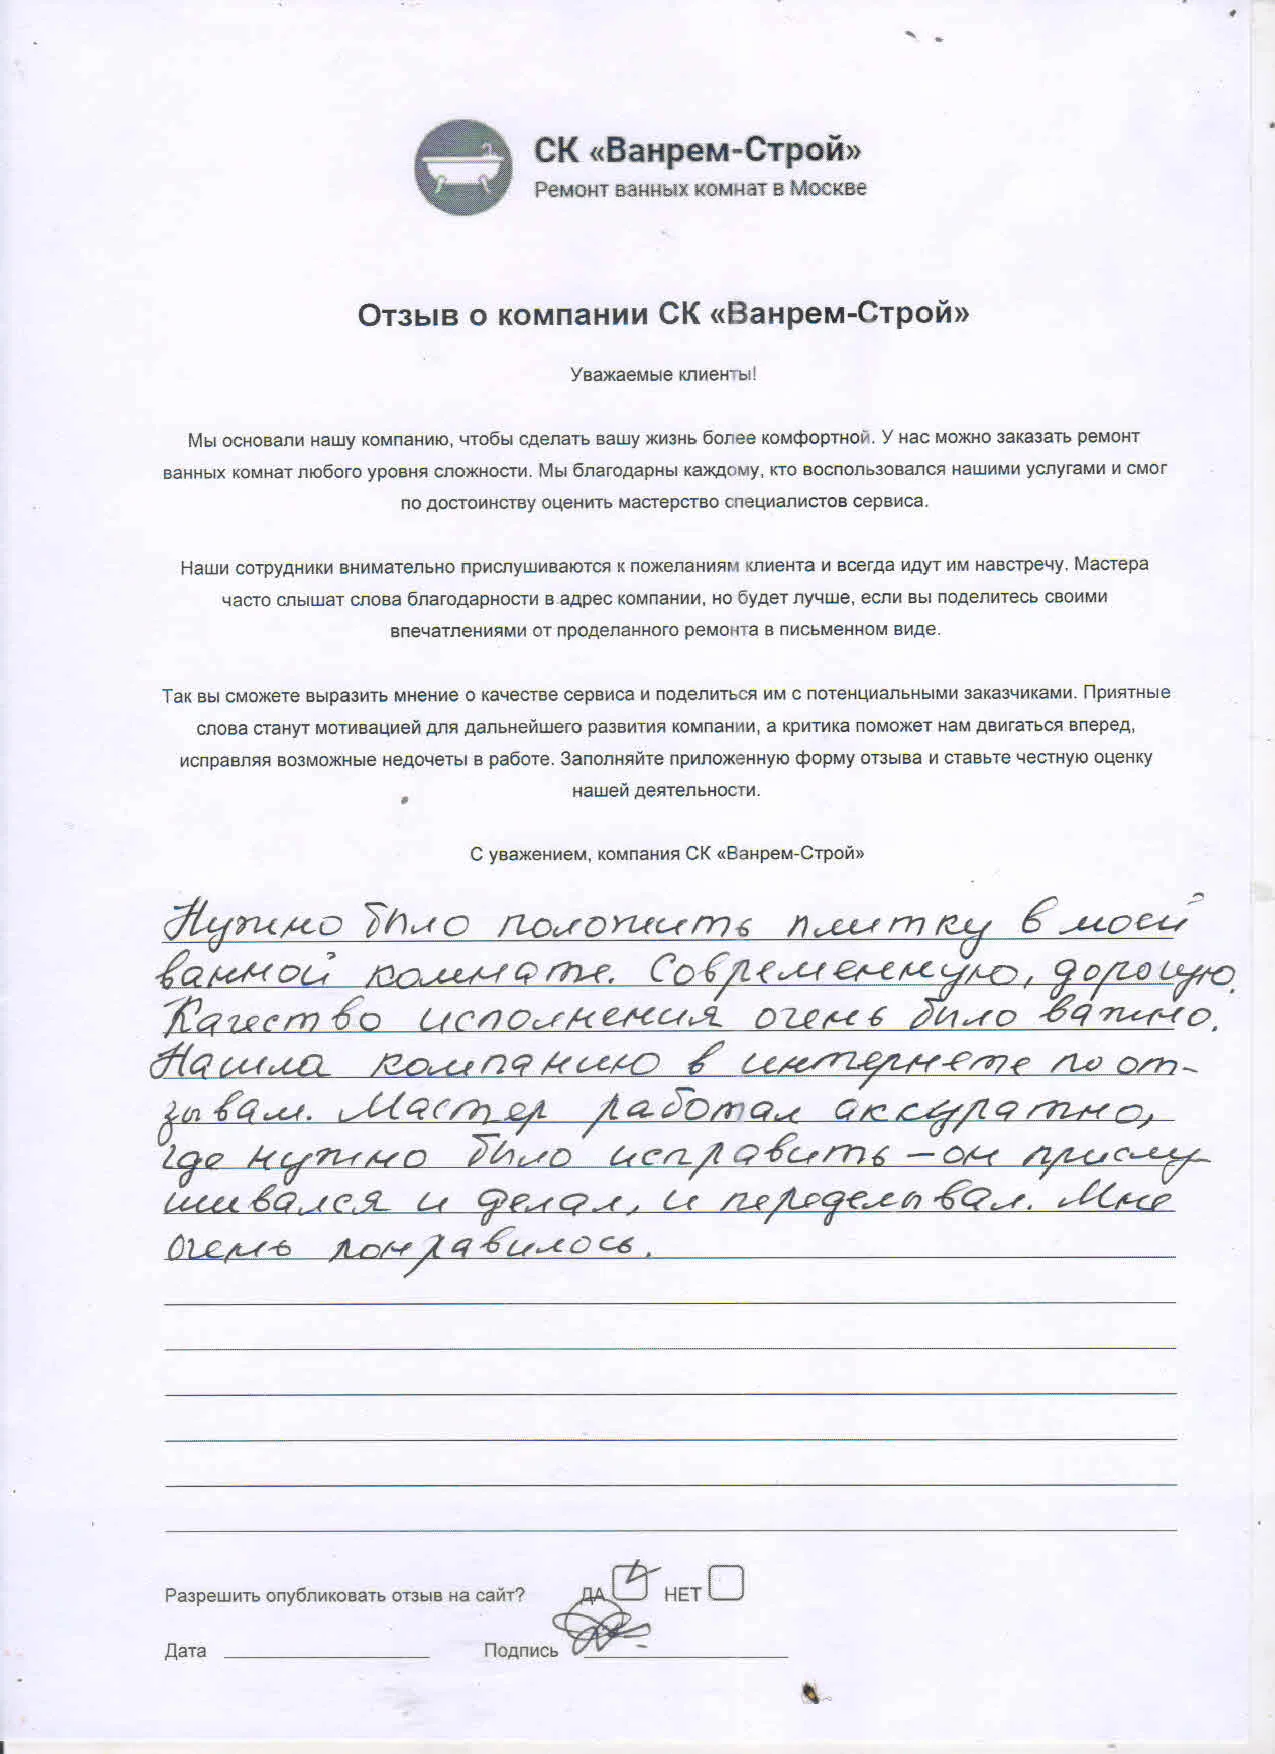 СК «Ванрем-Строй»
Ремонт ванных комнат в Москве
Отзыв о компании СК «Ванрем-Строй»
Уважаемые клиенты!
Мы основали нашу компанию, чтобы сделать вашу жизнь более комфортной. У нас можно заказать ремонт
ванных комнат любого уровня сложности. Мы благодарны каждому, кто воспользовался нашими услугами и смог
по достоинству оценить мастерство специалистов сервиса.
Наши сотрудники внимательно прислушиваются к пожеланиям клиента и всегда идут им навстречу. Мастера
часто слышат слова благодарности в адрес компании, но будет лучше, если вы поделитесь своими
впечатлениями от проделанного ремонта в письменном виде.
Так вы сможете выразить мнение о качестве сервиса и поделиться им с потенциальными заказчиками. Приятные
слова станут мотивацией для дальнейшего развития компании, а критика поможет нам двигаться вперед,
исправляя возможные недочеты в работе. Заполняйте приложенную форму отзыва и ставьте честную оценку
нашей деятельности.
С уважением, компания СК «Ванрем-Строй»
Нужно было положить плитку в моей
ванной комнате. Современную, дорогую.
Качество исполнения очень было важно.
Нашла компанию в интернете по от-
зывам. Мастер работал аккуратно,
где нужно было исправить – он прислу
шивался и делал, и переделывал. Мне
очень понравилось.
Разрешить опубликовать отзыв на сайт? ДА НЕТ
Дата Подпись